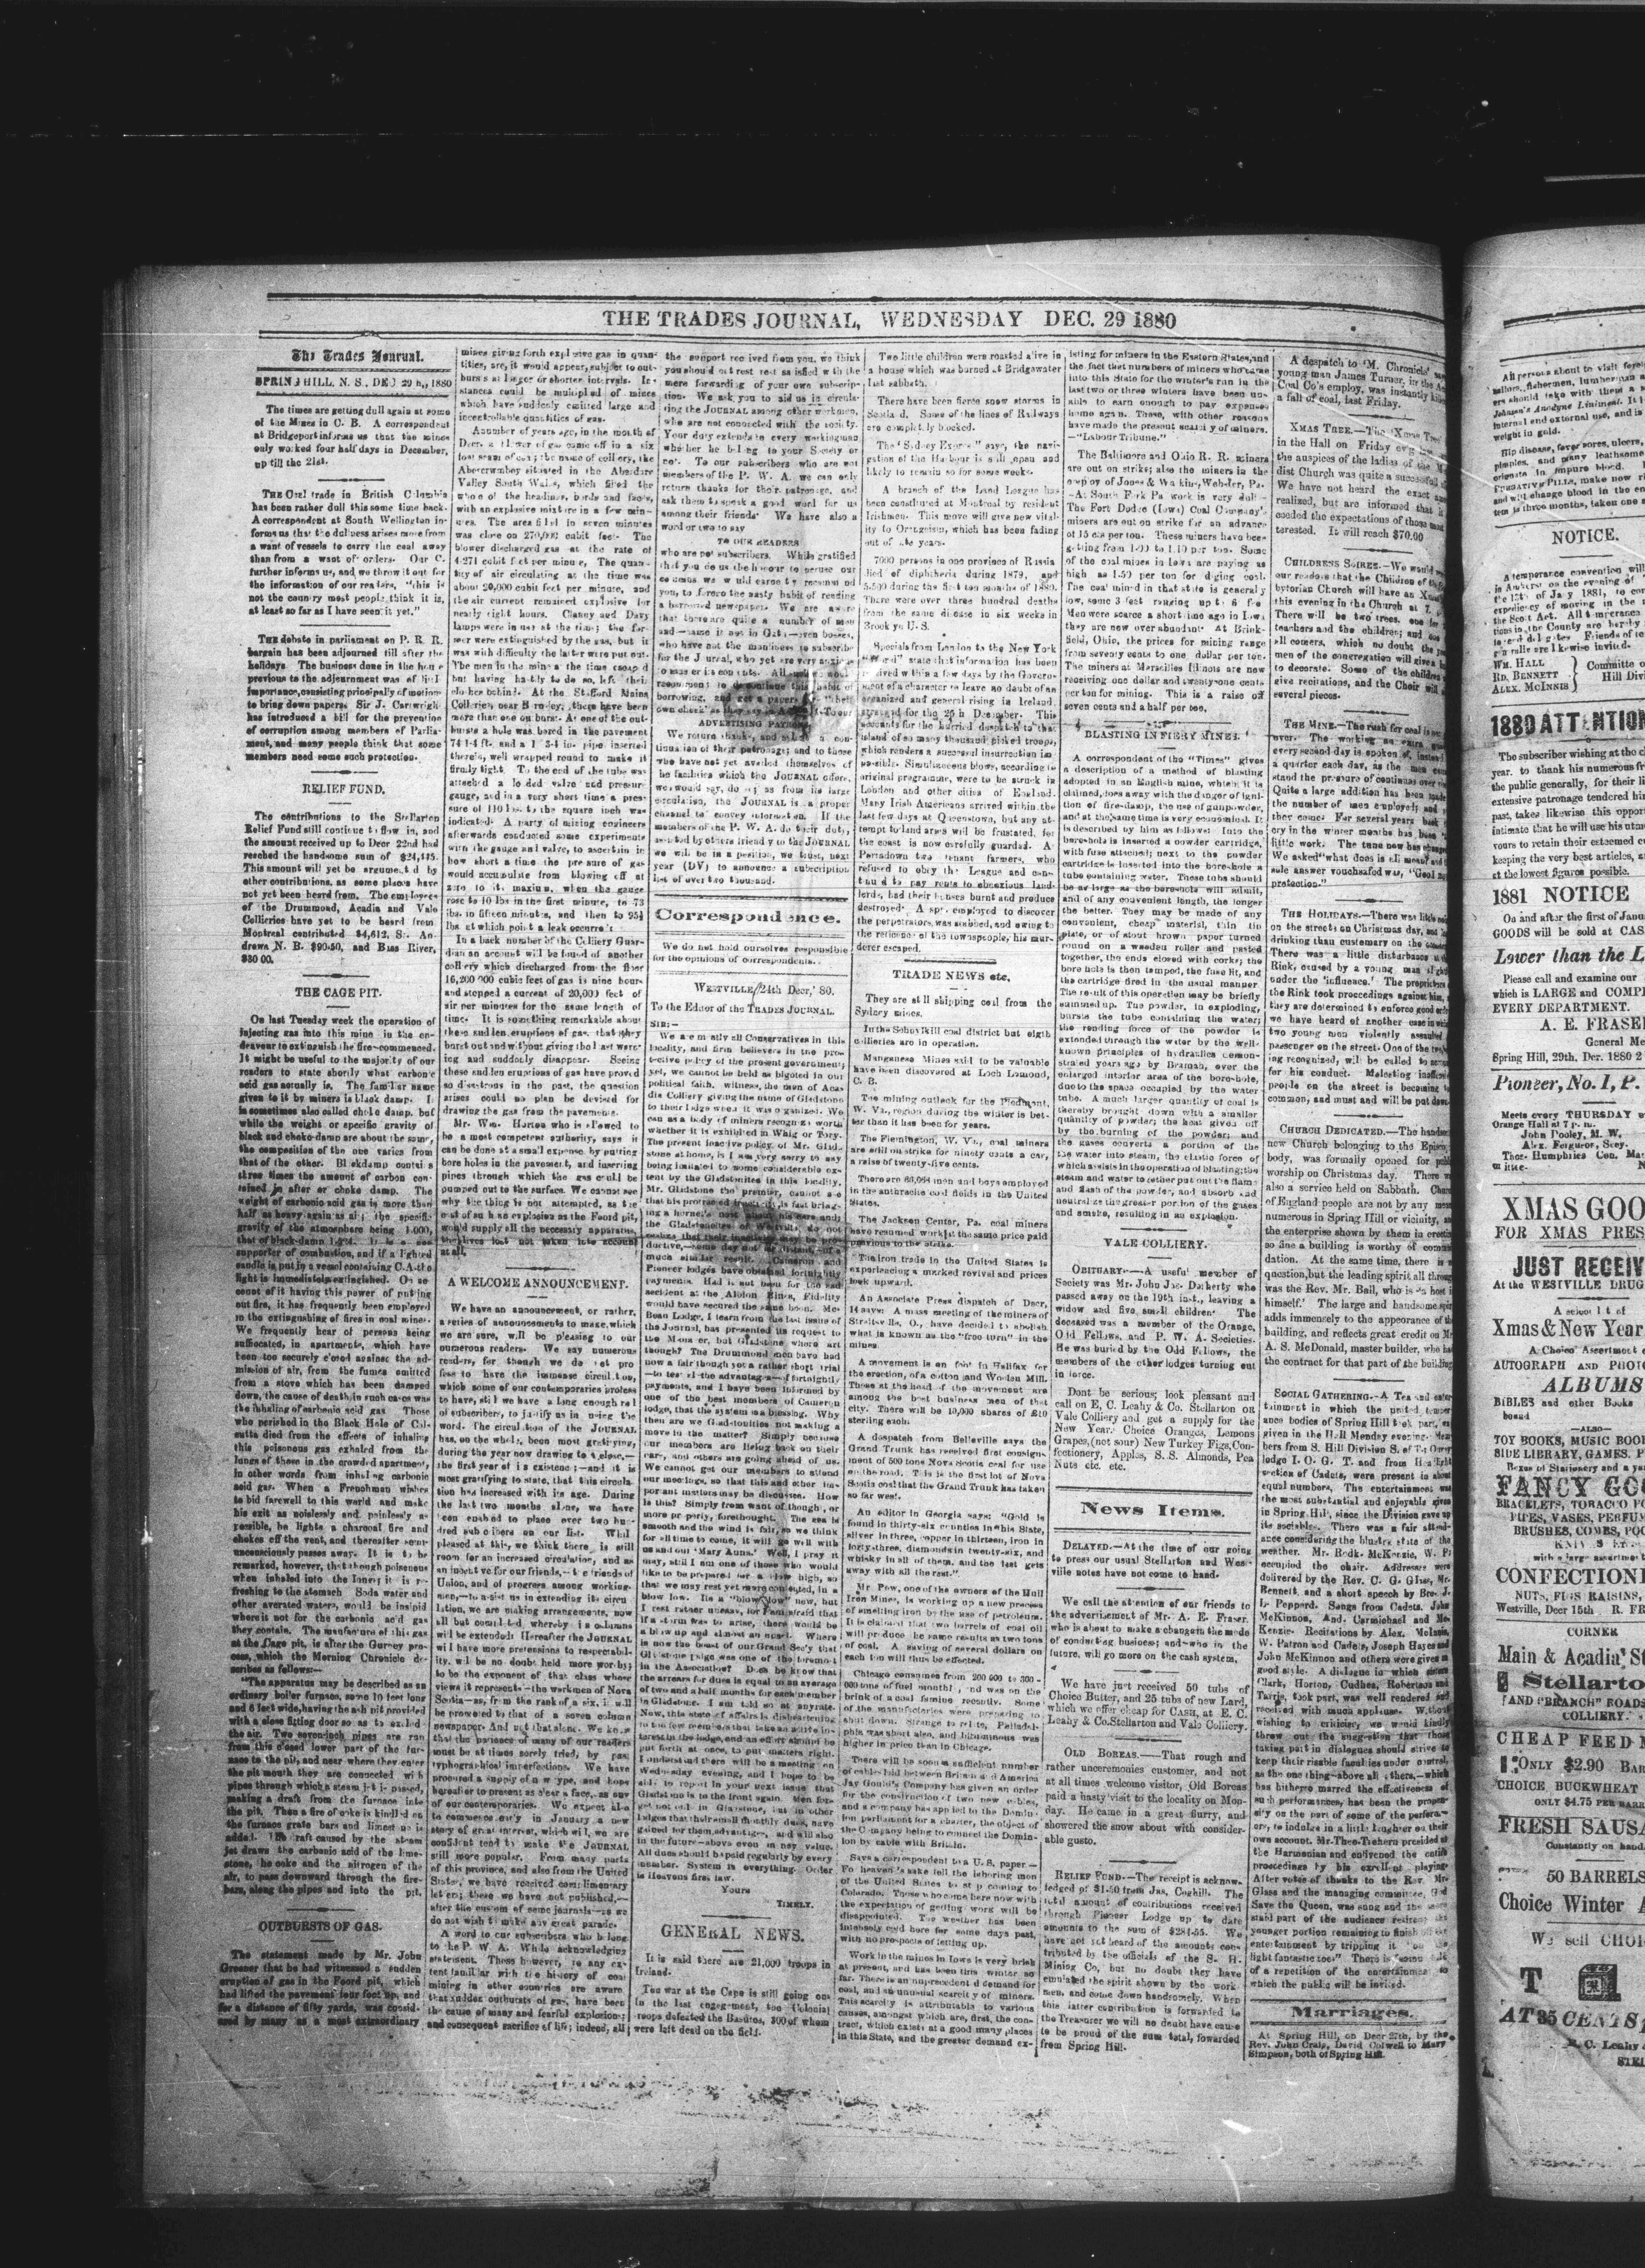 THE TRADES JOURNAL, WEDNESDAY DEC. 29 1880
The Trades Journal.
SPRING HILL, N. S., DEC 29 h,, 1880
The times are getting dull again at some
of the Mines in C. B. A correspondent
at Bridgeport informs us that the mines
only worked four half days in December,
up till the 21st.
THE Coal trade in British Columbia
has been rather dull this some time back.
A correspondent at South Wellington in-
forms us that the dulness arises more from
a want of vessels to carry the coal away
than from a want of orders. Our C.
further informs us, and we throw it out for
the information of our readers, "this is
not the country most people think it is,
at least so far as I have seen it yet."
THE debate in parliament on P. R. R.
bargain has been adjourned till after the
holidays. The business done in the house
previous to the adjournment was of little
importance, consisting principally of motions
to bring down papers. Sir J. Cartwright
has introduced a bill for the prevention
of corruption among members of Parlia-
ment, and many people think that some
members need some such protection.
RELIEF FUND.
The contributions to the Stellarton
Relief Fund still continue to flow in, and
the amount received up to Decr 22nd had
reached the handsome sum of
This amount will yet be argumented by
other contributions, as some places have
not yet been heard from. The employees
of the Drummond, Acadia and Vale
Collieries have yet to be heard from
Montreal contributed $4,612, St. An-
drews N. B. $90.50, and Bass River,
$30 00.
THE CAGE PIT.
On last Tuesday week the operation of
injecting gas into this mine in the en-
deavour to extinguish the fire commenced.
It might be useful to the majority of our
readers to state shortly what carbonic
acid gas actually is. The familiar name
given to it by miners is black damp. It
is sometimes also called choke damp, but
while the weight or specific gravity of
black and choke-damp are about the same,
the composition of the one varies from
that of the other. Blackdamp contains
three times the amount of carbon con-
tained in after or choke damp. The
weight of carbonic acid gas is more than
half as heavy again as air; the specific
gravity of the atmosphere being 1.000,
that of black-damp It is a non
supporter of combustion, and if a lighted
candle is put in a vessel containing C.A. the
light is immediately extinguished. On ac-
count of it having this power of putting
out fire, it has frequently been employed
in the extinguishing of fires in coal mines.
We frequently hear of persons being
suffocated, in apartments, which have
been too securely closed against the ad-
mission of air, from the fumes emitted
from a stove which has been damped
down, the cause of death in such cases was
the inhaling of carbonic acid gas. Those
who perished in the Black Hole of Cal-
cutta died from the effects of inhaling
this poisonous gas exhaled from the
lungs of those in the crowded apartment,
in other words from inhaling carbonic
acid gas. When a Frenchman wishes
to bid farewell to this world and make
his exit as noislessly and painlessly as
possible, he lights a charcoal fire and
chokes off the vent, and thereafter semi-
unconsciously passes away. It is to be
remarked, however, that though poisonous
when inhaled into the lungs it is re-
freshing to the stomach Soda water and
other averated waters, would be insipid
where it not for the carbonic acid gas
they contain. The manfacure of this gas
at the Cage pit, is after the Gurney pro-
cess, which the Morning Chronicle de-
scribes as follows:—
"The apparatus may be described as an
ordinary boiler furnace, some 10 feet long
and 6 feet wide, having the ash pit provided
with a close fitting door so as to exclude
the air. Two seven-inch pipes are run
from this closed lower part of the fur-
nace to the pit, and near where they enter
the pit mouth they are connected with
pipes through which a steam jet is passed,
making a draft from the furnace into
the pit. Then a fire of coke is kindled on
the furnace grate bars and limed ne is
added. The draft caused by the steam
jet draws the carbonic acid of the lime-
stone, the coke and the nitrogen of the
air, to pass downward through the fire-
bars, along the pipes and into the pit.
OUTBURSTS OF GAS.
The statement made by Mr. John
Greener that he had witnessed a sudden
eruption of gas in the Foord pit, which
had lifted the pavement four feet up, and
for a distance of fifty yards, was consid-
ered by many as a most extraordinary
mines giving forth explosive gas in quan-
tities, are, it would appear, subject to out-
bursts at larger or shorter intervals. In-
stances could be multiplied of mines
which have suddenly emitted large and
incontrollable quantities of gas.
A number of years ago, in the month of
Decr. a blower of gas came off in a six
foot seam of coal; the name of colliery, the
Abercrwmboy situated in the Aberdare
Valley South Wales, which filled the
whole of the headings, bords and faces,
with an explosive mixture in a few min-
utes. The area filled in seven minutes
was close on 270,000 cubit feet. The
blower discharged gas at the rate of
4.271 cubit feet per minute, The quan-
tity of air circulating at the time was
about 20,000 cubit feet per minute, and
the air current remained explosive for
nearly eight hours. Clanny and Davy
lamps were in use at the time; the for-
mer were extinguished by the gas, but it
was with difficulty the latter were put out.
The men in the mine a the time escaped
but having hastily to do so, left their
clothes behind. At the Stafford Mains
Colliery, near Barnsley, there have been
more than one outburst. At one of the out-
bursts a hole was bored in the pavement
74 1-4 ft. and a 1 3-4 in. pipe inserted
therein, well wrapped round to make it
firmly tight. To the end of the tube was
attached a loaded valve and pressure
gauge, and in a very short time a pres-
sure of 110 lbs. to the square inch was
indicated. A party of mining engineers
afterwards conducted some experiments
with the gauge and valve, to ascertain in
how short a time the pressure of gas
would accumulate from blowing off at
zero to its maxium, when the gauge
rose to 10 lbs in the first minute, to 73
lbs. in fifteen minutes, and then to 95½
lbs at which point a leak occurred.
In a back number of the Colliery Guar-
dian an account will be found of another
colliery which discharged from the floor
16,200 000 cubic feet of gas in nine hours
and stopped a current of 20,000 feet of
air per minutes for the same length of
time. It is something remarkable about
these sudden eruptions of gas, that they
burst out and without giving the least warn-
ing and suddenly disappear. Seeing
these sudden eruptions of gas have proved
so disastrous in the past, the question
arises could no plan be devised for
drawing the gas from the pavements.
Mr. Wm. Horton who is allowed to
be a most competent authority, says it
can be done at a small expense by putting
bore holes in the pavement, and inserting
pipes through which the gas could be
pumped out to the surface. We cannot see
why the thing is not attempted, as the
cost of such as explosion as the Foord pit,
would supply all the necessary apparatus,
the lives lost not taken into account
at all.
A WELCOME ANNOUNCEMENT.
We have an announcement, or rather,
a series of announcements to make, which
we are sure, will be pleasing to our
numerous readers. We say numerous
readers, for though we do not pro
fess to have the immense circulation,
which some of our contemporaries profess
to have, still we have a long enough roll
of subscribers, to justify us in using the
word. The circulation of the JOURNAL
has, on the whole, been most gratifying,
during the year now drawing to a close,—
the first year of its existence;—and it is
most gratifying to state, that this circula-
tion has increased with its age. During
the last two months alone, we have
been enabled to place over two hun-
dred subscribers on our list. While
pleased at this, we thick there is still
room for an increased circulation, and as
an inducetive for our friends,—the friends of
Union, and of progress among working-
men,—to assist us in extending its circu
lation, we are making arrangements, now
all but completed whereby its columns
will be extended. Hereafter the JOURNAL
will have more pretensions to respectabil-
ity, will be no doubt held more worthy
to be the exponent of that class whose
views it represents—the workmen of Nova
Scotia—as, from the rank of a six, it will
be promoted to that of a seven column
newspaper. And not that alone. We know
that the patience of many of our readers
must be at times sorely tried, by past
typhographical imperfections. We have
procured a supply of new type, and hope
hereafter to present as clear a face, as any
of our contemporaries. We expect also
to commence early in January a new
story of great interest, which will, we are
confident tend to make the JOURNAL
still more popular. From many parts
of this province, and also from the United
States, we have received complimentary
letters; these we have not published,—
after the custom of some journals—as we
do not wish to make any great parade.
A word to our subscribers who belong
to the P. W. A. While acknowledging
statement. These however, to any ex-
tent familiar with the history of coal
mining in other countries are aware
that sudden outbursts of gas, have been
the cause of many and fearful explosions;
and consequent sacrifice of life; indeed, all
the support received from you, we think
you should not rest rest satisfied with the
mere forwarding of your own subscrip-
tion. We ask you to aid us in circula-
ting the JOURNAL among other workmen,
who are not connected with the society.
Your duty extends to every workingman
whether he belong to your Society or
not. To our subscribers who are not
members of the P. W. A. we can only
return thanks for their patronage, and
ask them to speak a good word for us
among their friends. We have also a
word or two to say
TO OUR READERS
who are not subscribers. While gratified
that you do us the honour to peruse our
columns we would earnestly recommend
you, to forego the nasty habit of reading
a borrowed newspaper. We are aware
that there are quite a number of men
and—name it not in Gath—even bosses,
who have not the manliness to subscribe
for the Journal, who yet are very anxious
ADVERTISING PATRONS
We return thanks, and a con-
tinuation of their patronage; and to those
who have not yet availed themselves of
the facilities which the JOURNAL offers,
we would say, do so; as from its large
circulation, the JOURNAL is a proper
channel to convey information. If the
members of the P. W. A. do their duty,
assisted by others friendly to the JOURNAL
we will be in a position, we trust, next
year (DV) to announce a subscription
list of over two thousand.
Correspondence.
We do not hold ourselves responsible
for the opinions of correspondents.
WESTVILLE, 24th Decr,' 80.
To the Editor of the TRADES JOURNAL.
SIR:—
We are mostly all Conservatives in this
locality, and firm believers in the pro-
tective policy of the present government;
yet, we cannot be held as bigoted in our
political faith, witness, the men of Aca-
dia Colliery giving the name of Gladstone
to their lodge when it was organized. We
can as a body of miners recognize worth
whether it is exhibited in Whig or Tory.
The present inactive policy of Mr. Glad-
stone at home, is I am very sorry to say
being imitated to some considerable ex-
tent by the Gladstonites in this locality.
Mr. Gladstone the premier, cannot see
that his protracted inactivity, is fast bring-
ing a hornet's nest about his ears and;
Pioneer lodges have obtained fortnightly
payments. Had it not been for the sad
accident at the Albion Mines, Fidelity
would have secured the same boon. Mc-
Bean Lodge, I learn from the last issue of
the Journal, has presented its request to
the Manager, but Gladstone where art
though? The Drummond men have had
now a fair though yet a rather short trial
—to test the advantages—of fortnightly
payments, and I have been informed by
one of the best members of Cameron
lodge, that the system is a blessing. Why
then are we Gladstonites not making a
move in the matter? Simply because
our members are lieing back on their
oars, and others are going ahead of us.
We cannot get our members to attend
our meetings, so that this and other im-
portant matters may be discussed. How
is this? Simply from want of though, or
more properly, forethought. The sea is
smooth and the wind is fair, so we think
for all time to come, it will go well with
us and our "Mary Anns." Well, I pray it
may, still I am one of those who would
like to be prepared for a blow high, so
that we may rest yet more contented, in a
blow low. Its a "blow low" now, but
I rest rather uneasy, for I am afraid that
if a storm was to arise, there would be
a blow up and almost an upset. Where
is now the boast of our Grand Sec'y that
Gladstone lodge was one of the foremost
in the Association? Does he know that
the arrears for dues is equal to an average
of two and a half months for each member
in Gladstone. I am told so at anyrate.
Now, this state of affairs is disheartening
to the few members that take an active in-
terest in the lodge, and an effort should be
put forth at once, to put matters right.
I understand there will be a meeting on
Wednesday evening, and I hope to be
able to report in your next issue that
Gladstone is to the front again. Men for-
get not only in Gladstone, but in other
lodges that their small monthly dues, have
gained for them advantages, and will also
in the future—above even in new value.
All dues should be paid regularly by every
member. System is everything. Order
is Heavens first law.
Yours
TIMELY.
GENERAL NEWS.
It is said there are 21,000 troops in
Ireland.
The war at the Cape is still going on.
In the last engagement, the Colonial
troops defeated the Basutos, 300 of whom
were left dead on the field.
Two little children were roasted alive in
a house which was burned at Bridgewater
last sabbath.
There have been fierce snow storms in
Scotland. Some of the lines of Railways
are completely blocked.
The "Sydney Express" says, the navi-
gation of the Harbour is still open and
likely to remain so for some weeks.
A branch of the Land League has
been constituted at Montreal by resident
Irishmen. This move will give new vital-
ity to Orangeism, which has been fading
out of late years.
7000 persons in one province of Russia
died of diphtheria during 1879, and
5.500 during the first ten months of 1880.
There were over three hundred deaths
from the same disease in six weeks in
Brooklyn U. S.
Specials from London to the New York
"Word" state that information has been
received within a few days by the Govern-
ment of a character to leave no doubt of an
organized and general rising in Ireland
arranged for the 26 h December. This
accounts for the hurried despatch to that
island of so many thousand picked troops,
which renders a successful insurrection im
possible. Simultaneous blows, according to
original programme, were to be struck in
London and other cities of England.
Many Irish Americans arrived within the
last few days at Queenstown, but any at-
tempt to land arms will be frustated, for
the coast is now carefully guarded. A
Portadown two tenant farmers, who
refused to obey the League and con-
tinued to pay rents to obnoxious land-
lords, had their houses burnt and produce
destroyed. A spy, employed to discover
the perpetrators, was stabbed, and owing to
the reticence of the townspeople, his mur-
derer escaped.
TRADE NEWS etc.
They are still shipping coal from the
Sydney mines.
In the Schuylkill coal district but eigth
collieries are in operation.
Manganese Mines said to be valuable
have been discovered at Loch Lomond,
C. B.
The mining outlook for the Piedmont,
W. Va., region during the winter is bet-
ter than it has been for years.
The Flemington, W. Va., coal miners
are still on strike for ninety cents a car,
a raise of twenty-five cents.
There are 66,064 men and boys employed
in the anthracite coal fields in the United
States.
The Jackson Center, Pa. coal miners
have resumed work at the same price paid
previous to the strike.
The iron trade in the United States is
experiencing a marked revival and prices
look upward.
An Associate Press dispatch of Decr,
14 says: A mass meeting of the miners of
Straitsville, O., have decided to abolish
what is known as the "free turn" in the
mines.
A movement is on foot in Halifax for
the erection, of a cotton and Woolen Mill.
Those at the head of the movement are
among the best business men of that
city. There will be 10,000 shares of £10
sterling each.
A despatch from Belleville says the
Grand Trunk has received first consign-
ment of 500 tons Nova Scotia coal for use
on the road. This is the first lot of Nova
Scotia coal that the Grand Trunk has taken
so far west.
An editor in Georgia says: "Gold is
found in thirty-six counties in this State,
silver in three, copper in thirteen, iron in
forty-three, diamonds in twenty-six, and
whisky in all of them, and the last gets
away with all the rest."
Mr. Pew, one of the owners of the Hull
Iron Mines, is working up a new process
of smelting iron by the use of petroleum.
It is claimed that two barrels of coal oil
will produce the same results as two tons
of coal. A saving of several dollars on
each ton will thus be effected.
Chicago consumes from 200 000 to 300 -
000 tons of fuel monthly, and was on the
brink of a coal famine recently. Some
of the manufactories were preparing to
shut down. Strange to relate, Philadel-
phia was short also, and bituminous was
higher in price than in Chicago.
There will be soon a sufficient number
of cables laid between Britain and America
Jay Gould's Company has given an order
for the construction of two new cables,
and a company has applied to the Domin-
ion parliament for a charter, the object of
the Company being to connect the Domin-
ion by cable with Britain.
Says a correspondent to a U. S. paper—
Fo heaven's sake tell the laboring men
of the United States to stop coming to
Colorado. Those who come here now with
the expectation of getting work will be
disappointed. The weather has been
intensely cold here for some days past,
with no prospects of letting up.
Work in the mines in Iowa is very brisk
at present, and has been this winter so
far. There is an unprecedent d demand for
coal, and an unusual scarcity of miners.
This scarcity is attributable to various
causes, amongst which are, first, the con-
tract, which exists at a good many places
in this State, and the greater demand ex-
isting for miners in the Eastern States, and
the fact that numbers of miners who came
into this State for the winter's run in the
last two or three winters have been un-
able to earn enough to pay expenses
home again. These, with other reasons
have made the present scarcity of miners.
—"Labour Tribune."
The Baltimore and Ohio R. R. miners
are out on strike; also the miners in the
employ of Jones & Watkins, Webster, Pa.
—At South Fork Pa work is very dull—
The Fort Dodge (Iowa) Coal Company's
miners are out on strike for an advance
of 15 cts per ton. These miners have been
getting from 1-00 to 1.10 per ton. Some
of the coal mines in Iowa are paying as
high as 1.50 per ton for diging coal.
The coal mined in that state is generally
low, some 3 feet ranging up to 6 fee
Men were scarce a short time ago in Iowa
they are now over abundant. At Brink-
field, Ohio, the prices for mining range
from seventy cents to one dollar per ton.
The miners at Marseilles Illinois are now
receiving one dollar and twenty-one cents
per ton for mining. This is a raise off
seven cents and a half per ton.
BLASTING IN FIERY MINES.
A correspondent of the "Times" gives
a description of a method of blasting
adopted in an English mine, which it is
claimed, does away with the danger of igni-
tion of fire-damp, the use of gunpowder,
and at the same time is very economical. It
is described by him as follows: Into the
bore-hole is inserted a powder cartridge,
with fuse attached; next to the powder
cartridge is inserted into the bore-hole a
tube containing water. These tubs should
be as large as the bore-hole will admit,
and of any convenient length, the longer
the better. They may be made of any
convenient, cheap material, thin tin
plate, or of stout brown paper turned
round on a wooden roller and pasted
together, the ends closed with corks; the
bore hole is then tamped, the fuse lit, and
the cartridge fired in the usual manner
The result of this operation may be briefly
summed up. The powder, in exploding,
bursts the tube containing the water;
the rending force of the powder is
extended through the water by the well-
known principles of hydraulics demon-
strated years ago by Bramah, over the
enlarged interior area of the bore-hole,
due to the space occupied by the water
tube. A much larger quantity of coal is
thereby brought down with a smaller
quantity of powder; the heat given off
by the burning of the powder; and
the gases converts a portion of the
the water into steam, the elastic force of
which assists in the operation of blasting; the
steam and water together put out the flame
and flash of the powder, and absorb and
neutralize the greater portion of the gases
and smoke, resulting in an explosion.
VALE COLLIERY.
OBITUARY—A useful member of
Society was Mr. John Jas. Daherty who
passed away on the 19th inst., leaving a
widow and five, small children. The
deceased was a member of the Orange,
Old Fellows, and P. W. A. Societies.
He was buried by the Odd Fellows, the
members of the other lodges turning out
in force.
Dont be serious; look pleasant and
call on E, C. Leahy & Co. Stellarton OR
Vale Colliery and get a supply for the
New Year. Choice Oranges, Lemons
Grapes, (not sour) New Turkey Figs, Con-
fectionery, Apples, S. S. Almonds, Pea
Nuts etc. etc.
News Items.
DELAYED.—At the time of our going
to press our usual Stellarton and Wes-
ville notes have not come to hand.
We call the attention of our friends to
the advertisement of Mr. A. E. Fraser.
who is about to make a change in the mode
of conducting business; and—who in the
future, will go more on the cash system.
We have just received 50 tubs of
Choice Butter, and 25 tubs of new Lard,
which we offer cheap for CASH, at E. C.
Leahy & Co. Stellarton and Vale Colliery.
OLD BOREAS.—That rough and
rather unceremonies customer, and not
at all times welcome visitor, Old Boreas
paid a hasty visit to the locality on Mon-
day. He came in a great flurry, and
showered the snow about with consider-
able gusto.
RELIEF FUND—The receipt is acknow-
ledged of $1.50 from Jas, Coghill. The
total amount of contributions received
through Pioneer Lodge up to date
amounts to the sum of We
have not yet heard of the amounts con-
tributed by the officials of the S. H.
Mining Co, but no doubt they have
emulated the spirit shown by the work-
men, and come down handsomely. When
this latter contribution is forwarded to
the Treasurer we will no doubt have cause
to be proud of the sum total, fowarded
from Spring Hill.
A despatch to 'M. Chronicle'
young man James Turner, in the
Coal Co's employ, was instantly
a fall of coal, last Friday.
XMAS TREE.—The 'Xmas Tree'
in the Hall on Friday ev'g
the auspices of the ladies of the
dist Church was quite a successful
We have not heard the exact
realized, but are informed that it
ceeded the expectations of those most
terested. It will reach $70.00
CHILDRENS SOIREE.—We would
our readers that the Children of the
byterian Church will have an Xmas
this evening in the Church at 7.
There will be two trees, one for
teachers and the children; and one
all comers, which no doubt the
men of the congregation will give a
to decorate. Some of the children
give recitations, and the Choir will
several pieces.
THE MINE.—The rush for coal is
over. The working an extra
every second day is spoken of, instead
a quarter each day, as the men
stand the pressure of continuous over
Quite a large addition has been made
the number of men employed; and
they come. For several years back
cry in the winter months has been
little work. The tune now has changed
We asked "what does it all mean? and
sole answer vouchsafed was, "Coal
protection."
THE HOLIDAYS.—There was little
on the streets on Christmas day, and
drinking than customary on the
There was a little disturbance
Rink, caused by a young man
under the 'influence.' The proprietors
the Rink took proceedings against him,
they are determined to enforce good order
we have heard of another case in which
two young men violently assaulted
passenger on the street. One of the
ing recognized, will be called to
for his conduct. Molesting inoffensive
people on the street is becoming
common, and must and will be put down.
CHURCH DEDICATED.—The handsome
new Church belonging to the Episco
body, was formally opened for public
worship on Christmas day. There
also a service held on Sabbath. Church
of England people are not by any means
numerous in Spring Hill or vicinity,
the enterprise shown by them in erecting
so fine a building is worthy of commen
dation. At the same time, there is
question, but the leading spirit all through
was the Rev. Mr. Ball, who is 'a host in
himself.' The large and handsome spire
adds immensely to the apperance of the
building, and reflects great credit on Mr
A. S. McDonald, master builder, who had
the contract for that part of the building
SOCIAL GATHERING.—A Tea and enter-
tainment in which the united temper-
ance bodies of Spring Hill took part,
given in the Hall Monday evening. Mem
bers from S. Hill Division S. of T.;
lodge I. O. G. T. and from
section of Cadets, were present in about
equal numbers, The entertainment was
the most substantial and enjoyable given
in Spring Hill, since the Division gave up
its sociable. There was a fair attend-
ance considering the blustry state of the
weather. Mr. Rodk. McKenzie, W. P.
occupied the chair. Addresses were
delivered by the Rev. C. G. Glass, Mr.
Bennett, and a short speech by Bro. J.
L. Peppard. Songs from Cadets. John
McKinnon, And. Carmichael and Mc-
Kenzie. Recitations by Alex. McInnis,
W. Patron and Cadets, Joseph Hayes and
John McKinnon and others were given in
good style. A dialogue in which sisters
Clark, Horton, Cudhea, Robertson and
Tattrie, took part, was well rendered and
received with much applause. Without
wishing to criticise; we would kindly
throw out the suggestion that those
taking part in dialogues should strive to
keep their risable faculties under control,
as the one thing—above all others,—which
has hitherto marred the effectiveness of
such performances, has been the propen-
sity on the part of some of the perform-
ers, to indolge in a little laughter on their
own account. Mr. Theo. Tiehern presided at
the Harmonian and enlivened the entire
proceedings by his excellent playing
After votes of thanks to the Rev. Mr.
Glass and the managing committee, God
Save the Queen, was sung and the more
staid part of the audience retired; the
younger portion remaining to finish off the
entertainment by tripping it "on the
light fantastic toe." There is some talk
of a repetition of the entertainment to
which the public will be invited.
Marriages.
At Spring Hill, on Decr 27th, by the
Rev. John Craig, David Colwell to Mary
Simpson, both of Spring Hill.
All persons about to visit
sailors, fishermen, lumberman
ers should take with them a
Johnson's Anodyne Liniment. It
internal and external use, and is
weight in gold.
Hip disease, fever sores, ulcers,
pimples, and many loathsome
originate in impure blood.
PURGATIVE PILLS, make now
and will change blood in the
tem in three months, taken one
NOTICE.
A temperance convention will
in Amherst on the evening of
the 12th of Jany 1881, to
expediency of moving in the
the Scott Act. All temperance
tions in the County are hereby
to send delegates Friends of te
generally are likewise invited.
WM. HALL
RD. BENNETT
ALEX. McINNIS
Committee of
Hill Divi
1880 ATTENTION
The subscriber wishing at the cl
year. to thank his numerous fr
the public generally, for their li
extensive patronage tendered hi
past, takes likewise this opport
intimate that he will use his utm
vours to retain their esteemed cu
keeping the very best articles, a
at the lowest figures possible.
1881 NOTICE
On and after the first of Janu
GOODS will be sold at CAS
Lower than the L
Please call and examine our
which is LARGE and COMPL
EVERY DEPARTMENT.
A. E. FRASE
General Me
Spring Hill, 29th. Dec. 1880 2
Pioneer, No. 1, P.
Meets every THURSDAY
Orange Hall at 7 p. m.
John Pooley, M. W.
Alex. Ferguson, Secy.
Thos. Humphries Con. Ma
mittee.
XMAS GOO
FOR XMAS PRES
JUST RECEIV
At the WESTVILLE DRUG
A select lot of
Xmas & New Year
A Choice Assortment
AUTOGRAPH AND PHOTO
ALBUMS
BIBLES and other Books
bound
—ALSO—
TOY BOOKS, MUSIC BOOK
SIDE LIBRARY, GAMES.
Boxes of Stationery and a
FANCY GOO
BRACELETS, TOBACCO PO
PIPES, VASES, PERFUM
BRUSHES, COMBS, POC
with a large assortment
CONFECTION
NUTS, FIGS RAISINS,
Westville, Decr 15th R. FR
CORNER
Main & Acadia St
Stellarto
AND "BRANCH" ROADS
COLLIERY.
CHEAP FEED
ONLY $2.90 BAR
CHOICE BUCKWHEAT
ONLY $4.75 PER BARR
FRESH SAUSA
Constantly on hand
50 BARRELS
Choice Winter A
We sell CHOI
T
AT 35 CENTS
E. C. Leahy
STEL